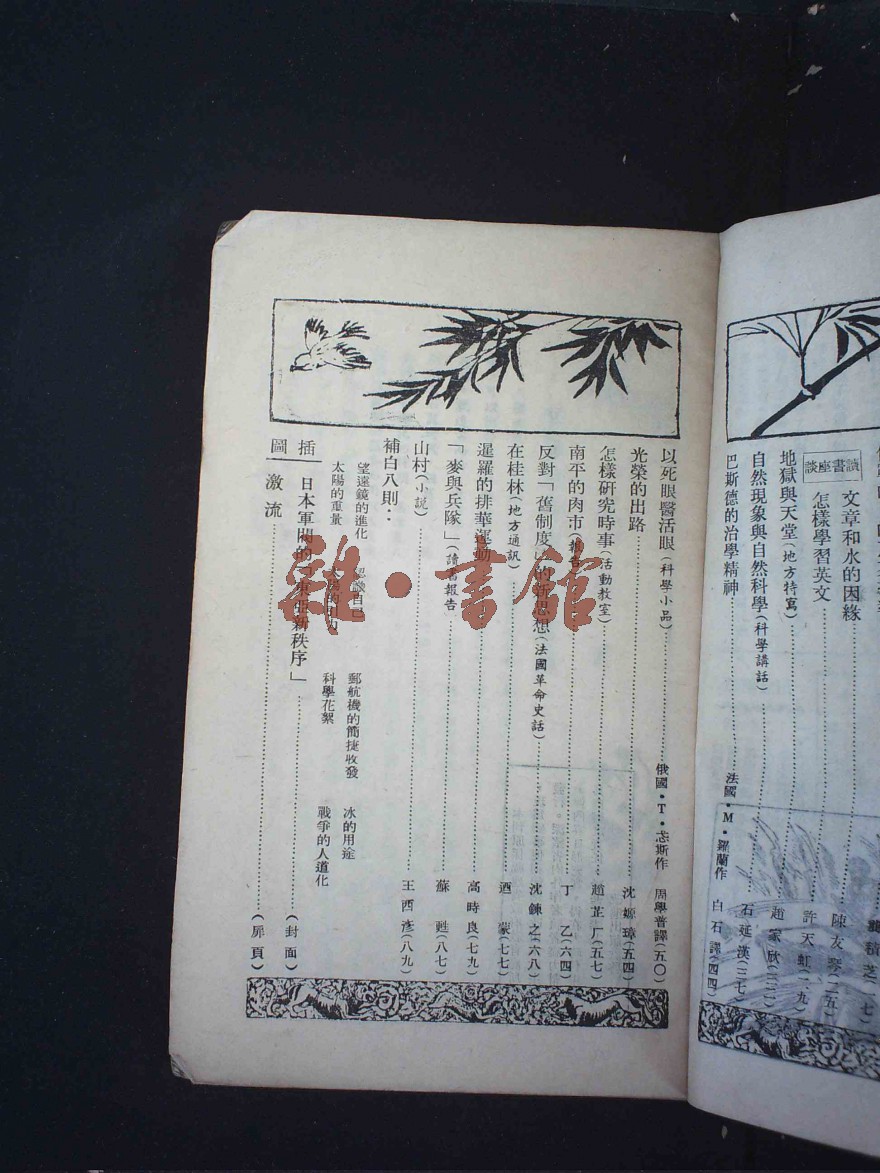 文章和水的因緣 陳友琴(二五)
讀書座談
怎樣學習英文 許天虹(二九)
地獄與天堂(地方特寫) 趙家欣(三二)
自然現象與自然科學(科學講話) 石延漢(三七)
巴斯德的治學精神 法國·M·羅蘭作 白石譯(四四)
以死眼醫活眼(科學小品) 俄國·T·斯作 周學普譯(五〇)
光榮的出路 沈嫄璋(五四)
怎樣研究時事(活動教室) 趙芷厂(五七)
南平的肉市(報告) 丁乙(六四)
反對「舊制度」的新思想(法國革命史話) 沈鍊之(六八)
在桂林(地方通訊) 迺蒙(七七)
暹羅的排華運動 高時良(七九)
「麥與兵隊」(讀書報告) 蘇甦(八七)
山村(小說) 王西彥(八九)
補白八則：
望遠鏡的進化 認識自己 郵航機的簡捷收發 冰的用途
太陽的重量 科學花絮 戰爭的人道化
插圖
日本軍閥的「東亞新秩序」 (封面)
激流 (扉頁)
雜·書館